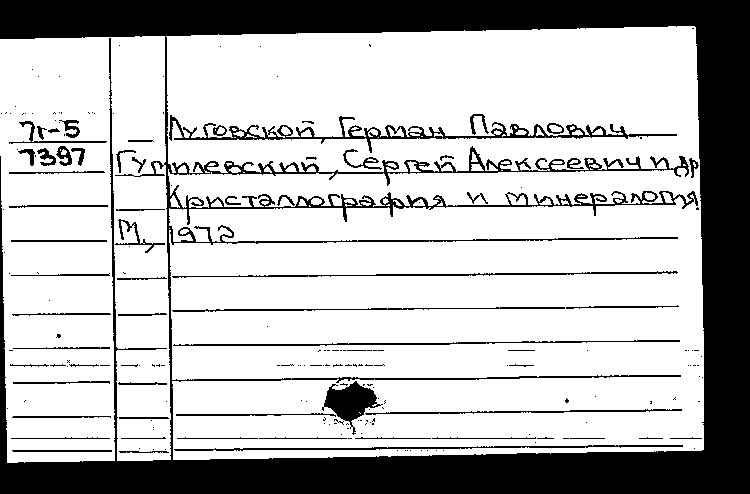 7г-5 Луговской, Герман Павлович
7397 Гумилевский, Сергей Алексеевич и др
Кристаллография и минералогия
М., 1972